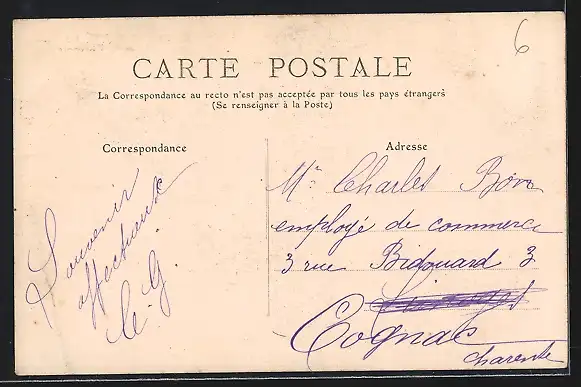 6
CARTE POSTALE
La Correspondance au recto n'est pas acceptée par tous les pays étrangers
(Se renseigner à la Poste)
Correspondance
Souvenir
affectueux
G.
Adresse
Mr Charles
employé de commerce
3 rue Bidouard 3
Cognac
charente